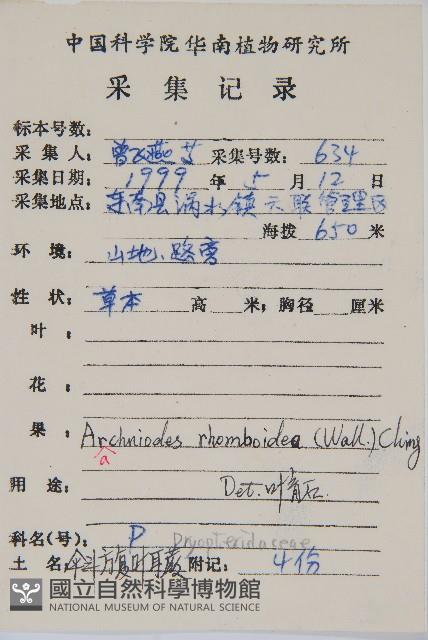 中国科学院华南植物研究所
采集记录
标本号数:
采集人: 曾飞燕 采集号数: 634
采集日期: 1999 年 5 月 12 日
采集地点: 乐南县 水镇 联管理区
海拨 650 米
环境: 山地、路旁
性状: 草本 高 米; 胸径 厘米
叶:
花:
果: Archniodes rhomboidea (Wall.) Ching
a
用途: Det. 叶
科名(号): P Dryopteridaceae
土名: 斜方复叶耳蕨 附记: 4份
國立自然科學博物館
NATIONAL MUSEUM OF NATURAL SCIENCE